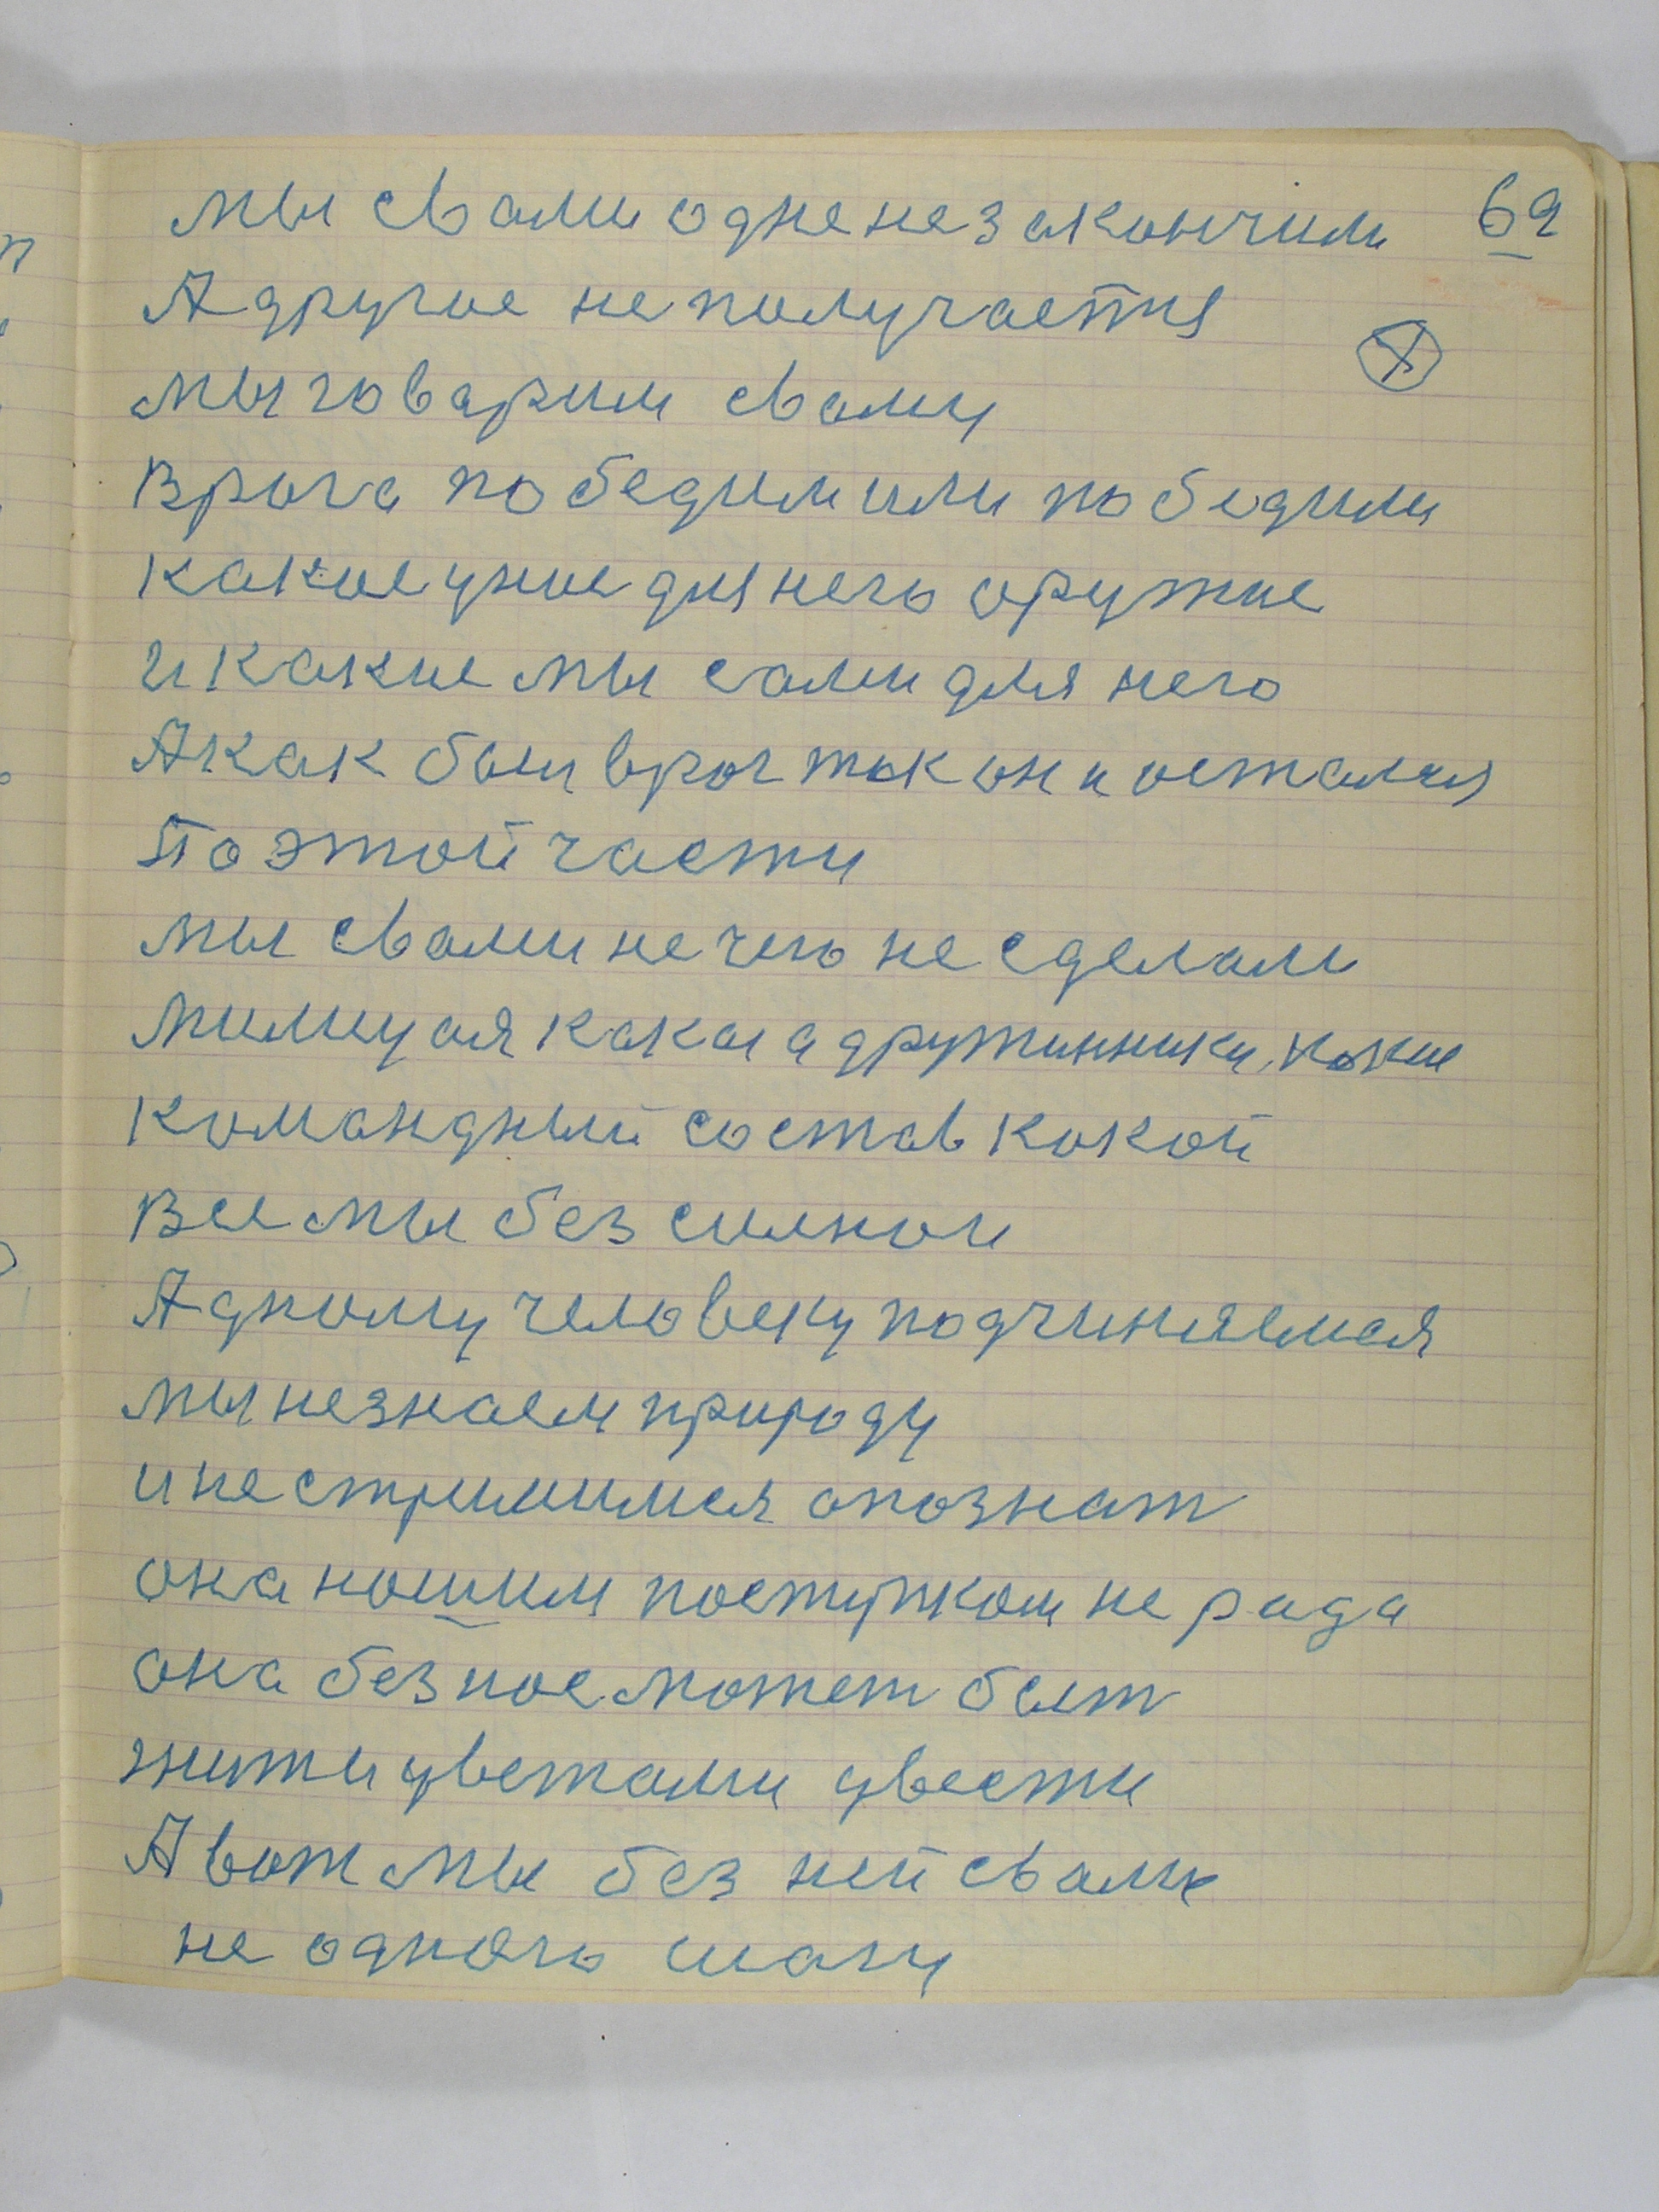 мы свами одне незакончим 69
А другое не получается
мы говарим свами
врага победим или победили
какое у нас для него оружие
и какие мы сами для него
А как был враг так он и остался
По этой части
мы свами не чего не сделали
милиция какая а дружинники какие
командный состав какой
все мы без силнои
Адному человеку подчиняемся
мы незнаем природу
и не стримимся опознат
она нашим поступком не рада
она без нас может быт
жить и цветами цвести
А вот мы без ней свами
не одного шагу